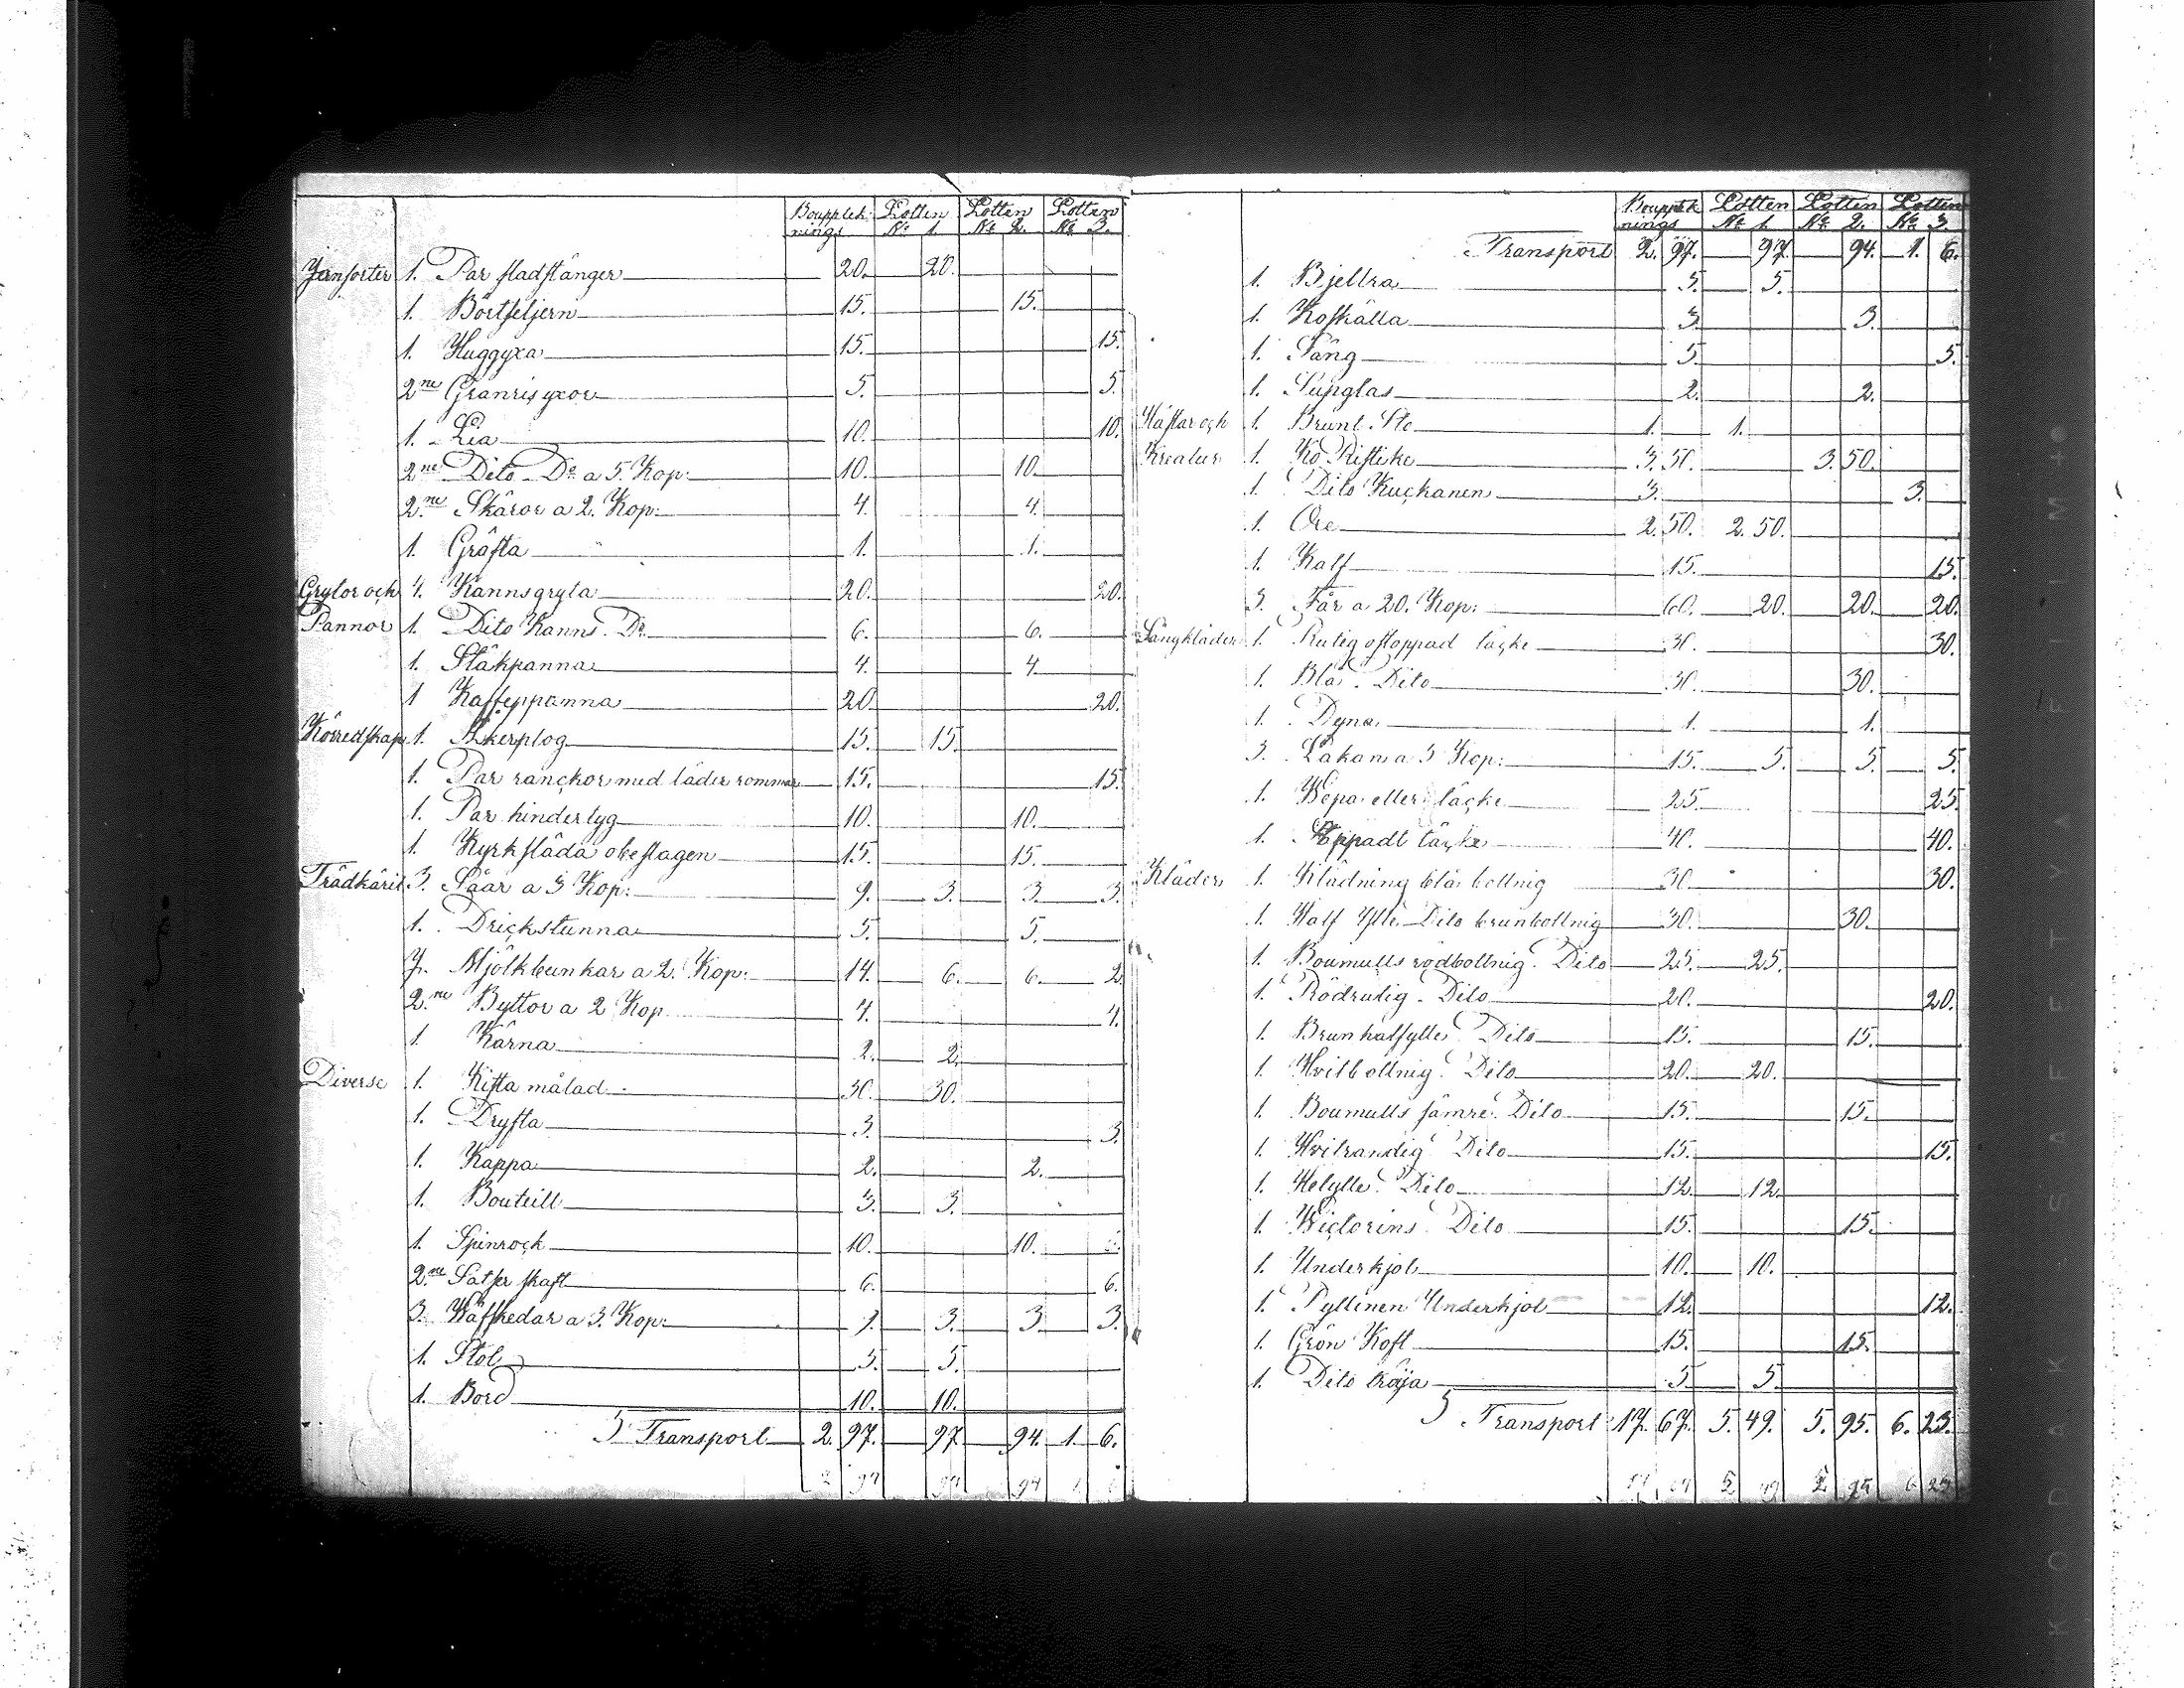 Bouppteck- Lotten Lotten Lotten
nings No 1. No 2. No 3.
Jernsorter 1. Par sladstänger 20. 20.
1. 15. 15.
1. Huggyxa 15. 15.
2ne Granrisyxor 5. 5.
1. Lia 10. 10.
2ne Dito Do a 5. Kop: 10. 10.
2ne Skäror a 2. Kop: 4. 4.
1. Gräfta 1. 1.
Grytor och 4. Kannsgryta 20. 20.
Pannor 1. Dito Kanns. Do 6. 6.
1. Stäkpanna 4. 4.
1 Kaffeppanna 20. 20.
Körredskap 1. Åkerplog 15. 15.
1. Par ranckor med läder rommar 15. 15.
1. Par hindertyg 10. 10.
1. Kyrksläda obeslagen 15. 15.
Trädkäril 3. Såar a 3 Kop: 9. 3. 3. 3.
1. Drickstunna 5. 5.
7. Mjölkbunkar a 2. Kop: 14. 6. 6. 2.
2ne Byttor a 2 Kop 4. 4.
1 Kärna 2. 2.
Diverse 1. Kista målad 30. 30.
1. Dryfta 3. 3.
1. Kappa 2. 2.
1. Bouteill 3. 3.
1. Spinrock 10. 10.
2ne skaft 6. 6.
3. Wäfskedar a 3. Kop: 9. 3. 3. 3.
1. Stol 5. 5.
1. Bord 10. 10.
Transport 2. 97. 97. 94. 1. 6.
2 97 97 94 1 6
Bouppteck Lotten Lotten Lotten
nings No 1. No 2. No 3.
Transport 2. 97. 97. 94. 1. 6.
1. Bjellra 5. 5.
1. Koskälla 3. 3.
1. Tång 5. 5.
1. Supglas 2. 2.
Hästar och 1. Brunt Sto 1. 1.
Kreatur 1. Ko Ristike 3. 50. 3. 50.
1. Dito Kuckanen 3. 3.
1. Oxe 2. 50. 2. 50.
1. Kalf 15. 15.
3. Får a 20. Kop: 60. 20. 20. 20.
Sängkläder 1. Rutig ostoppad täcke 30. 30.
1. Blå Dito 30. 30.
1. Dyna 1. 1.
3. Lakan a 5 Kop: 15. 5. 5. 5.
1. Wepa eller täcke 25. 25.
1. Stoppadt täcke 40. 40.
Kläder 1. Klädning blå bottnig 30. 30.
1. Half Ylle Dito brunbottnig 30. 30.
1. Boumulls rödbottnig Dito 25. 25.
1. Rödrutig Dito 20. 20.
1. Brun halfylle Dito 15. 15.
1. Hvitbottnig Dito 20. 20.
1. Boumulls sämre Dito 15. 15.
1. Hvitrandig Dito 15. 15.
1. Helylle Dito 12. 12.
1. Wictorins Dito 15. 15.
1. Underkjol 10. 10.
1. Pyttinen Underkjol 12. 12.
1. Grön Koft 15. 15.
1. Dito tröja 5. 5.
Transport 17. 67. 5. 49. 5. 95. 6. 23.
17 67 5 49 5 95 6 23
KODAK SAFETY FILM 40